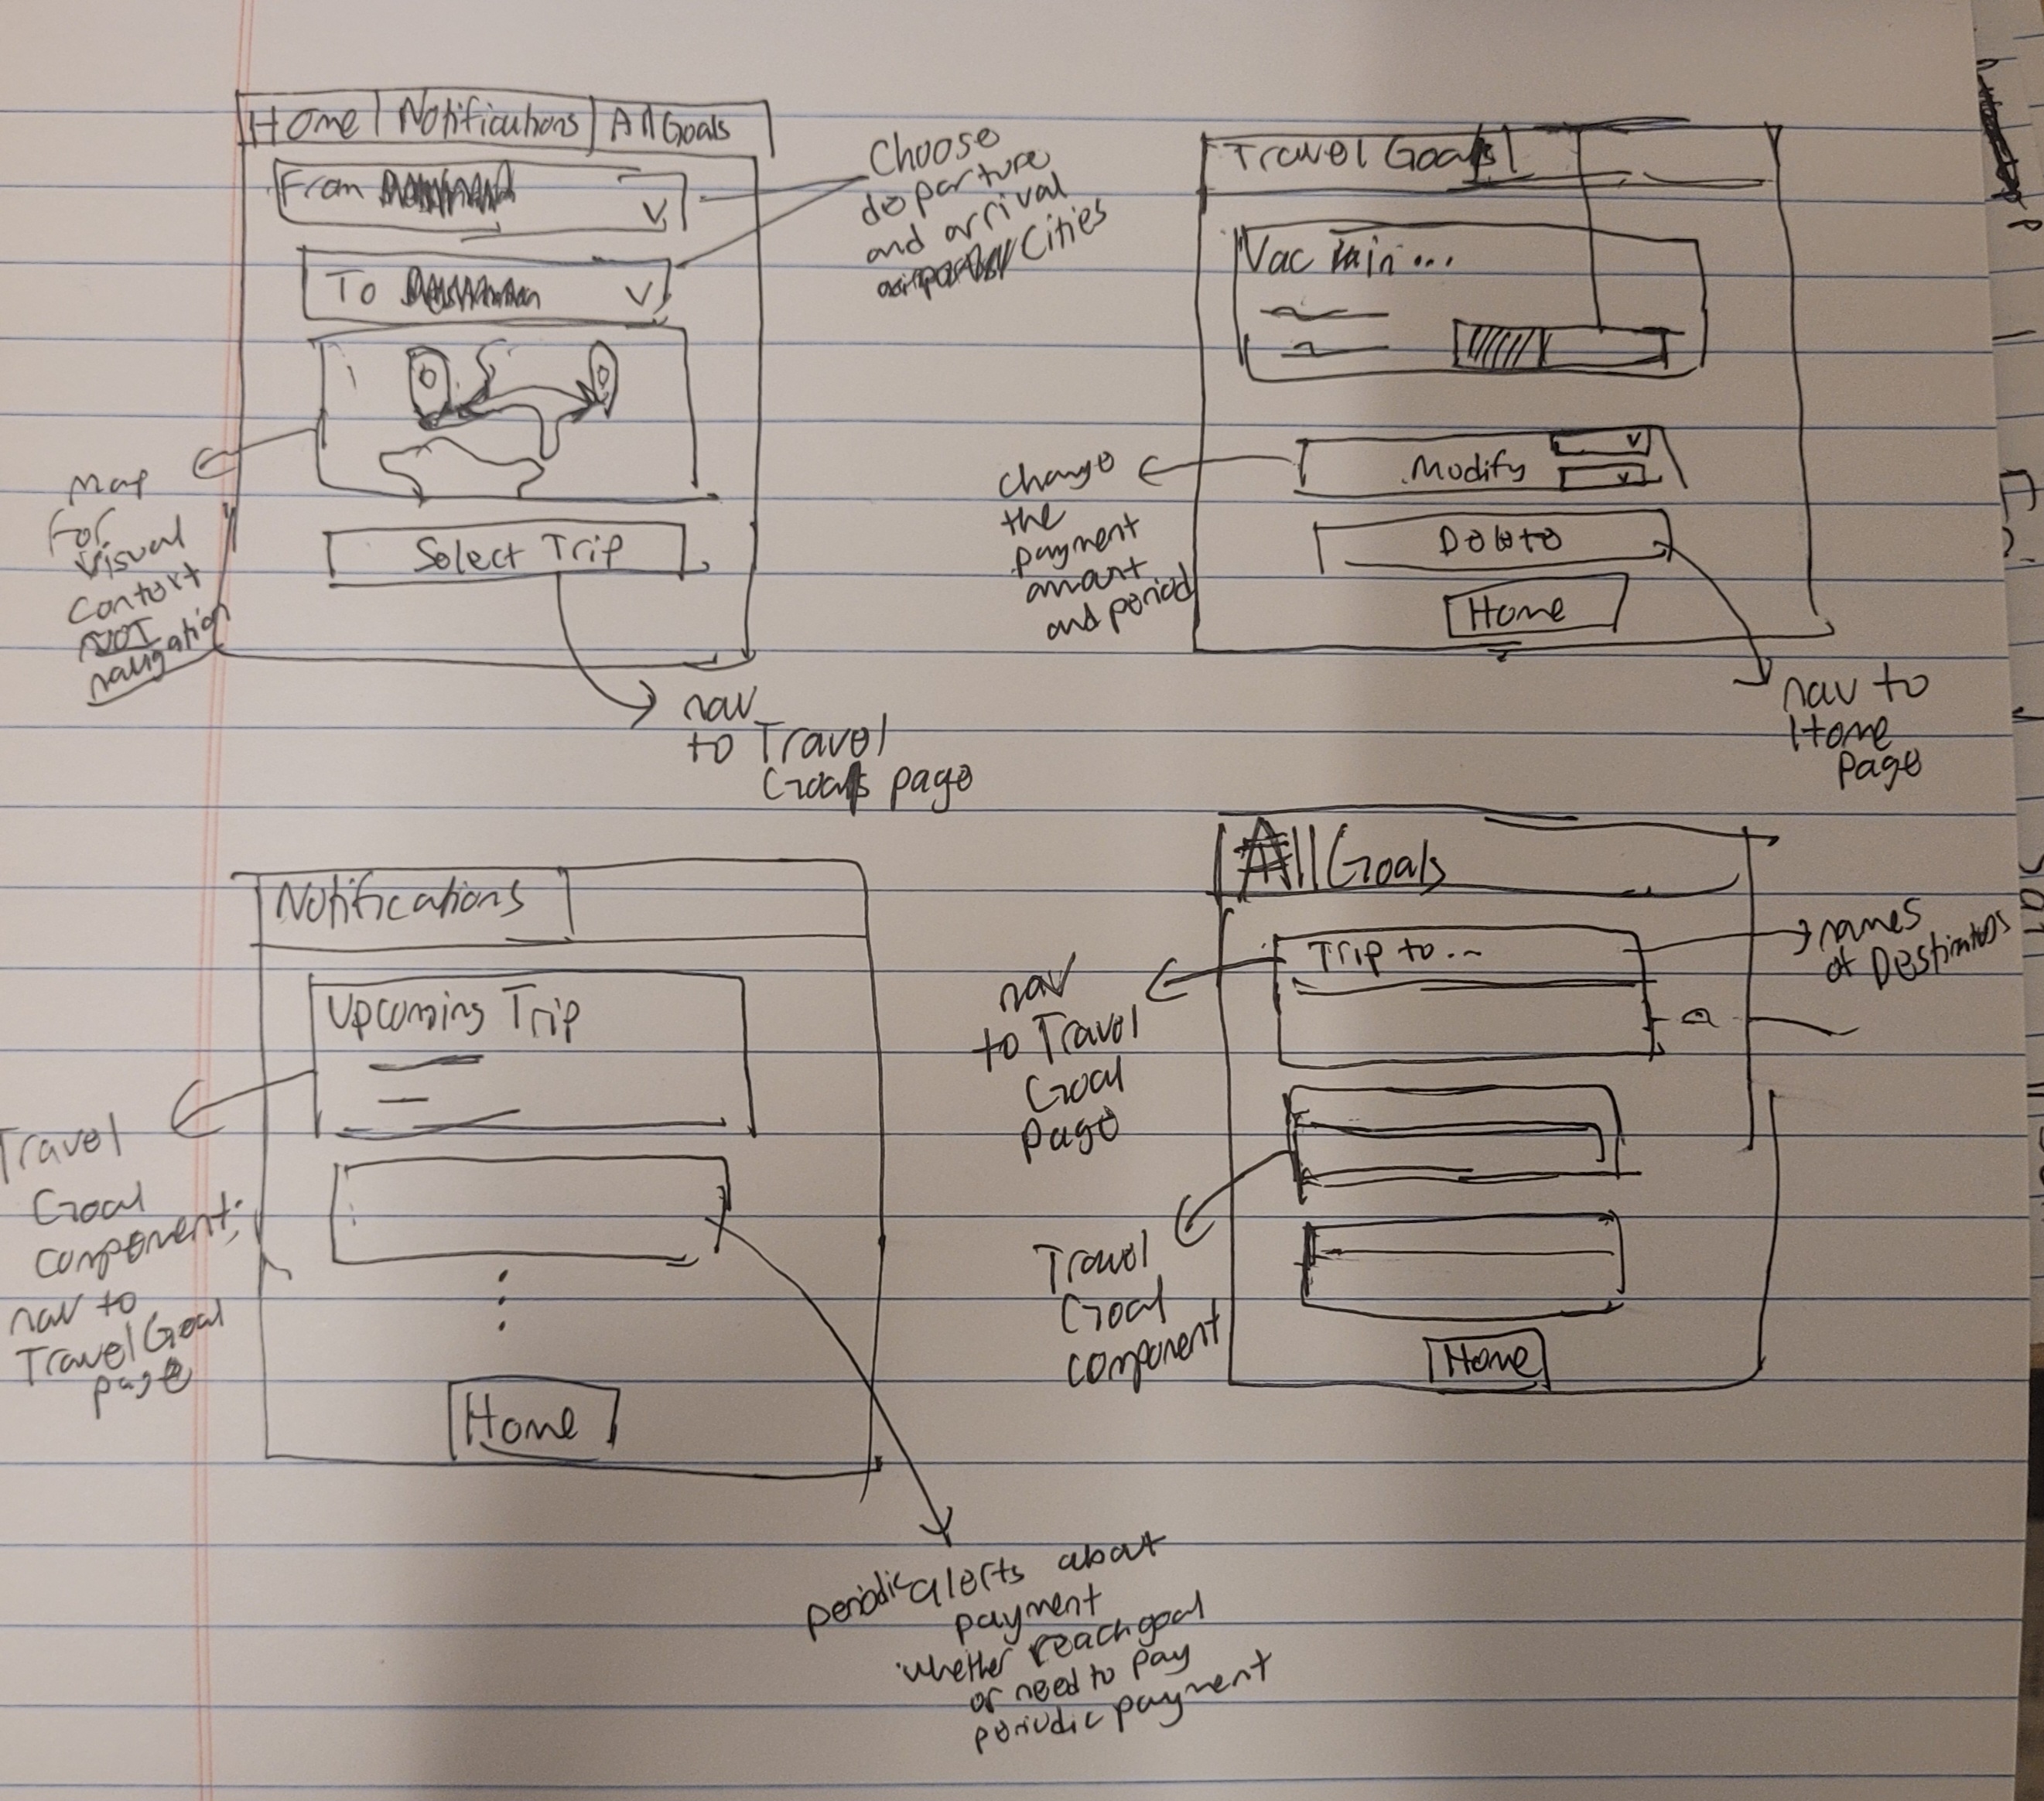 Home Notifications All Goals
From
V
To
V
Select Trip
Choose
departure
and arrival
Cities
Map
For
Visual
NOT
navigation
nav
to Travel
Goals page
Travel Goals
Vac
Modify V
V
Delete
Home
change
the
payment
amount
and period
nav to
Home
Page
Notifications
Upcoming Trip
Home
Travel
Goal
component;
nav to
Travel Goal
page
periodic alerts about
payment
whether reach goal
or need to pay
periodic payment
All Goals
Trip to...
Home
names
of Destinations
nav
to Travel
Goal
page
Travel
Goal
component